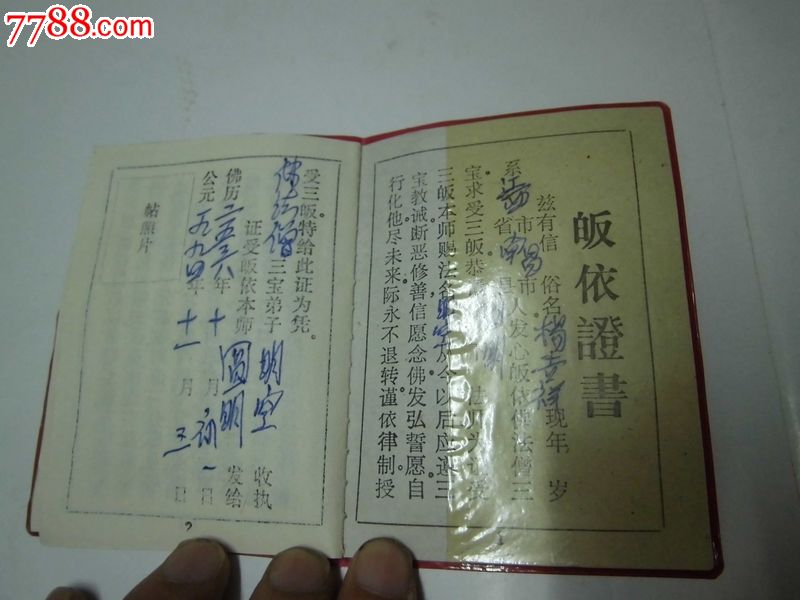 7788.com
皈依證書
兹有信 俗名杨吉祥现年 岁
系 省南昌市 县 人发心皈依佛法僧三
宝求受三皈恭 法师为证授
三皈本师赐法名明空从今以后应遵三
宝教诫断恶修善信愿念佛发弘誓愿自
行化他尽未来际永不退转谨依律制授
1
受三皈特给此证为凭。
佛法僧三宝弟子 明空 收执
证受皈依本师 圆明 发给
佛历二五三八年十月初一日
公元一九九四年十一月三日
帖照片
2